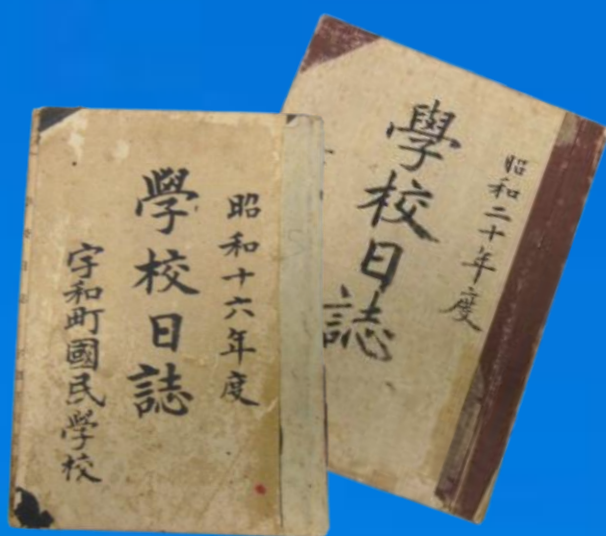 昭和十六年度
學校日誌
宇和町國民學校
昭和二十年度
學校日誌